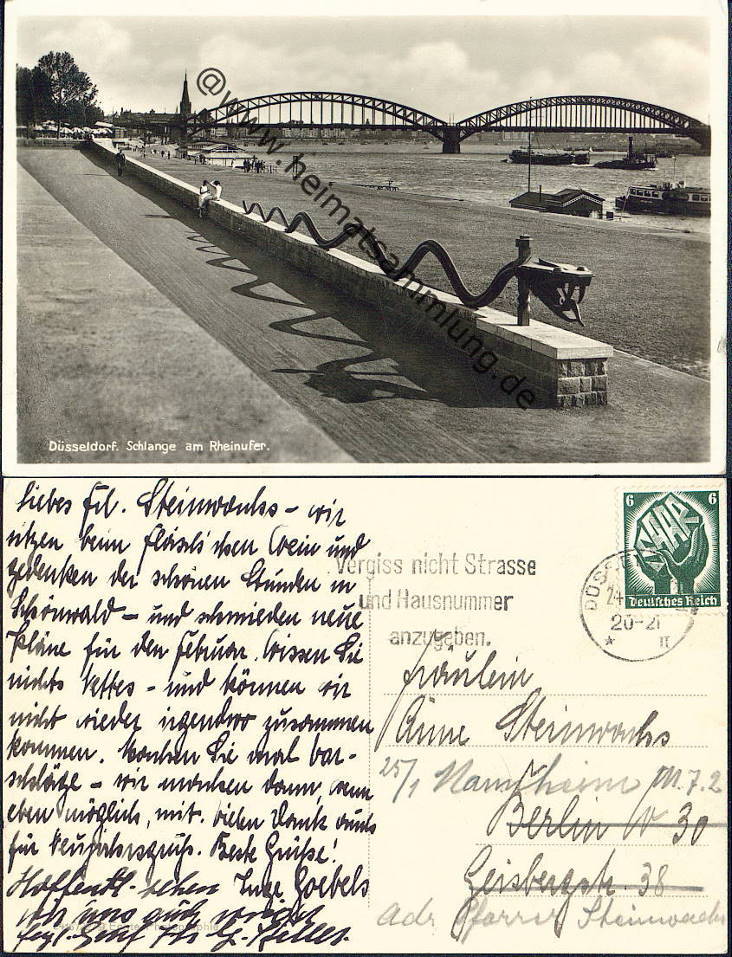 @www.heimatsammlung.de
Düsseldorf. Schlange am Rheinufer.
liebes Frl. Steinwachs – wir
sitzen beim Wein und
gedenken der schönen Stunden in
Schönwald – und schmieden neue
Pläne für den Februar. Wissen Sie
nichts Nettes – und können wir
nicht wieder irgendwo zusammen
kommen. Machen Sie mal Vor-
schläge – wir machen dann, wenn
eben möglich, mit. Vielen Dank auch
für Neujahrsgruß. Beste Grüße!
Hoffentl. sehen Inge Goebels
wir uns auch wieder
Vergiss nicht Strasse
und Hausnummer
anzugeben.
DÜSS
24
20-21
* II
6 6
SAAR
Deutsches Reich
Fräulein
Änne Steinwachs
25/1 Mannheim M.7.2
Berlin W 30
Geisbergstr. 38
Adr Pfarrer Steinwachs
Echte Photographie